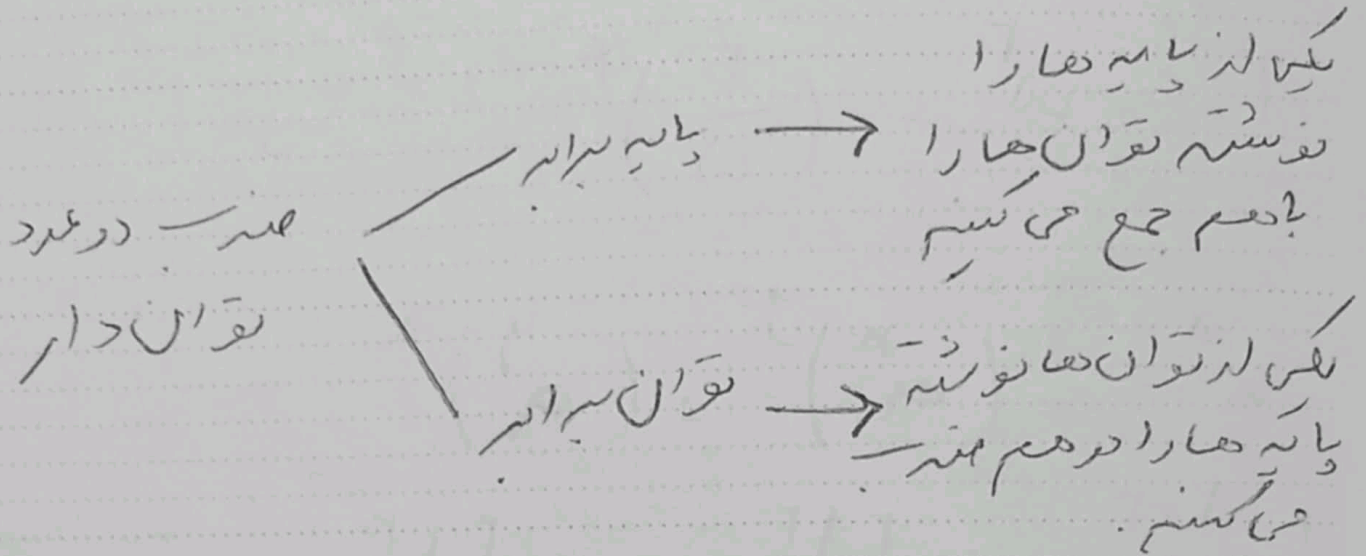 ضرب دو عدد
توان دار
پایه برابر
یکی از پایه ها را
نوشته توان ها را
باهم جمع می کنیم
توان برابر
یکی از توان ها نوشته
پایه ها را در هم ضرب
می کنیم.